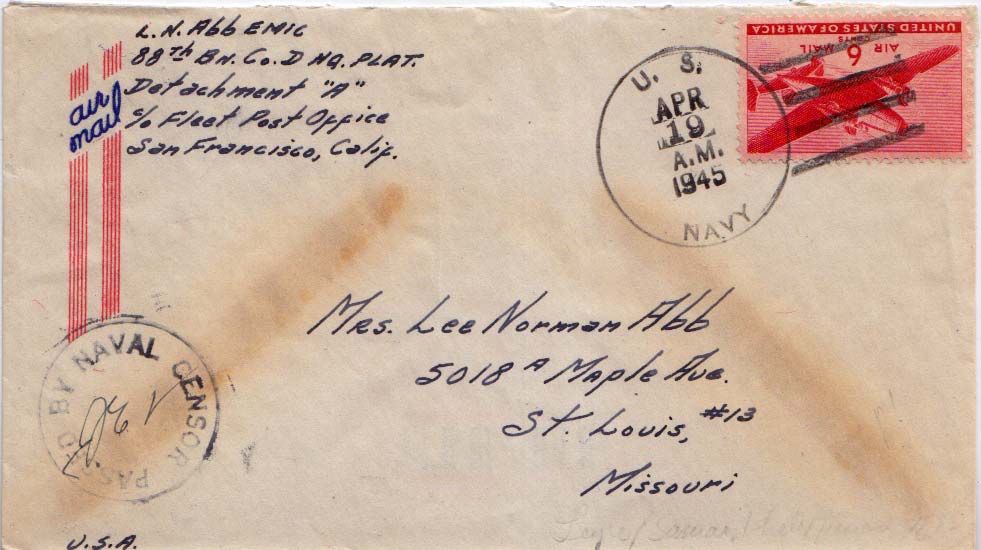 L.N. Abb EM1C
88th Bn. Co. D HQ. PLAT.
Detachment "A"
c/o Fleet Post Office
San Francisco, Calif.
air
mail
U. S.
APR
19
A.M.
1945
NAVY
UNITED STATES OF AMERICA
6 CENTS
AIR MAIL
Mrs. Lee Norman Abb
5018 A Maple Ave.
St. Louis, #13
Missouri
PASSED BY NAVAL CENSOR
U.S.A.
Leyte/Samar/Philippines